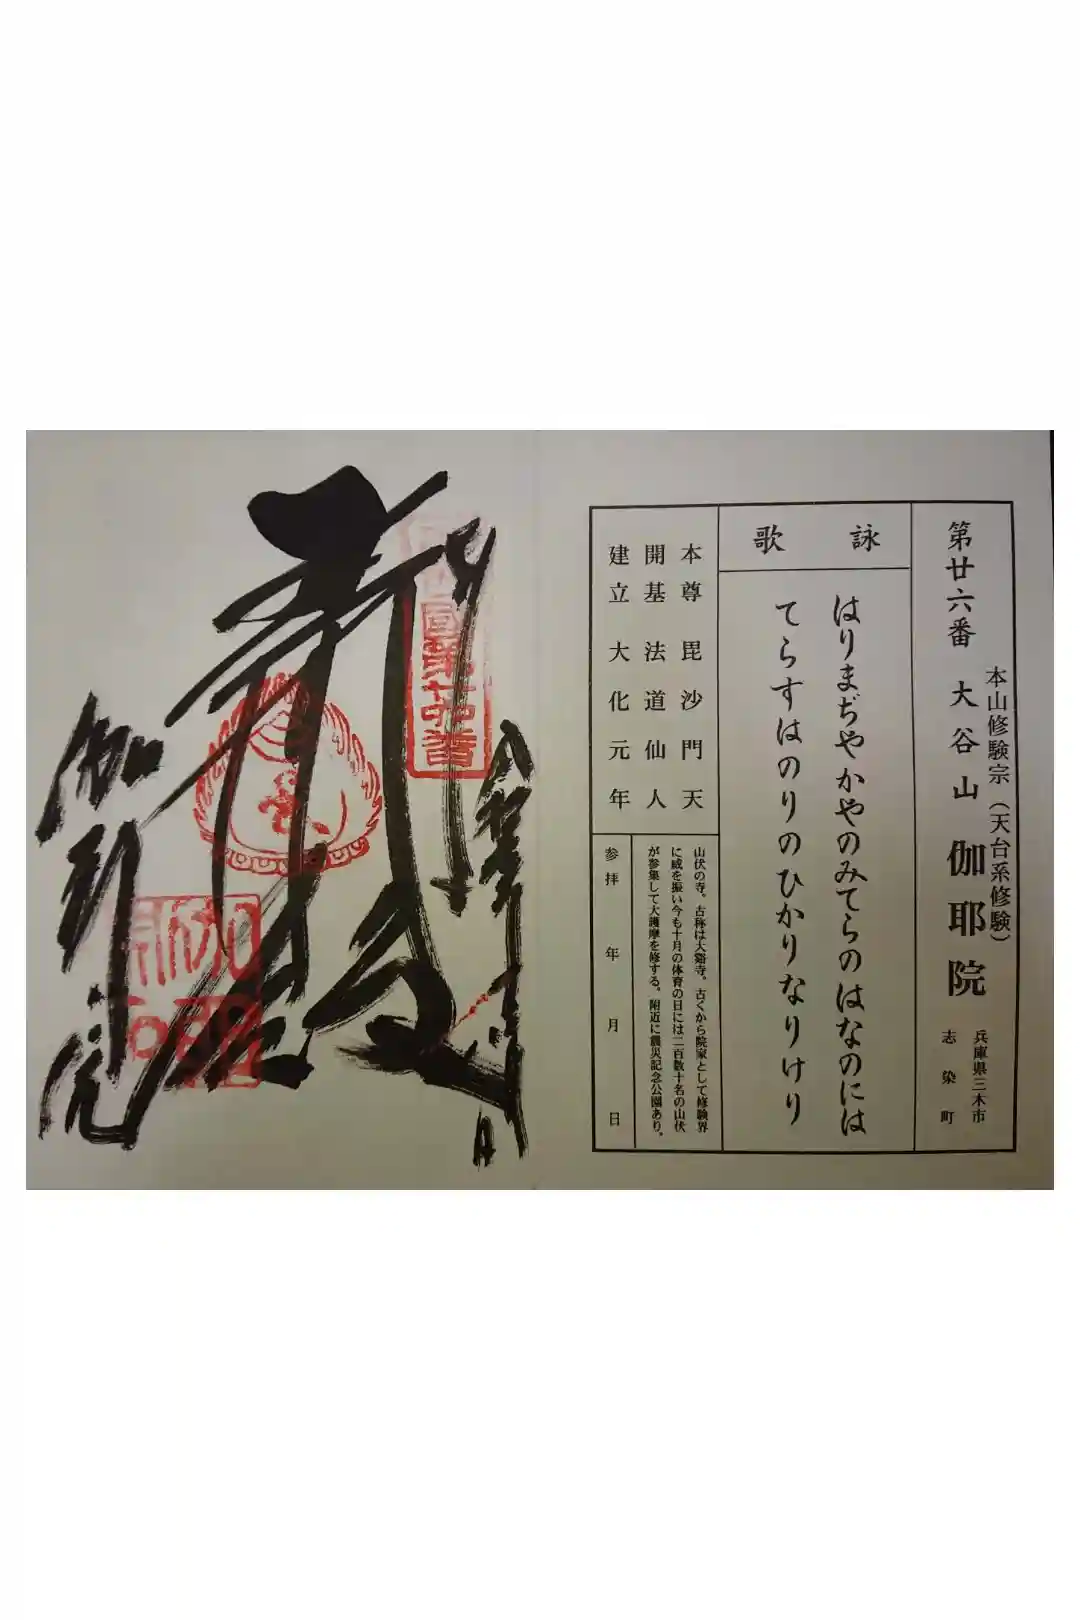 第廿六番 大谷山 伽耶院
本山修験宗(天台系修験)
兵庫県三木市
志染町
詠歌
はりまぢやかやのみてらのはなのには
てらすはのりのひかりなりけり
本尊 毘沙門天
開基 法道仙人
建立 大化元年
山伏の寺。古称は大谿寺。古くから院家として修験界
に威を振い今も十月の体育の日には二百数十名の山伏
が参集して大護摩を修する。附近に震災記念公園あり。
参拝 年 月 日
伽耶院